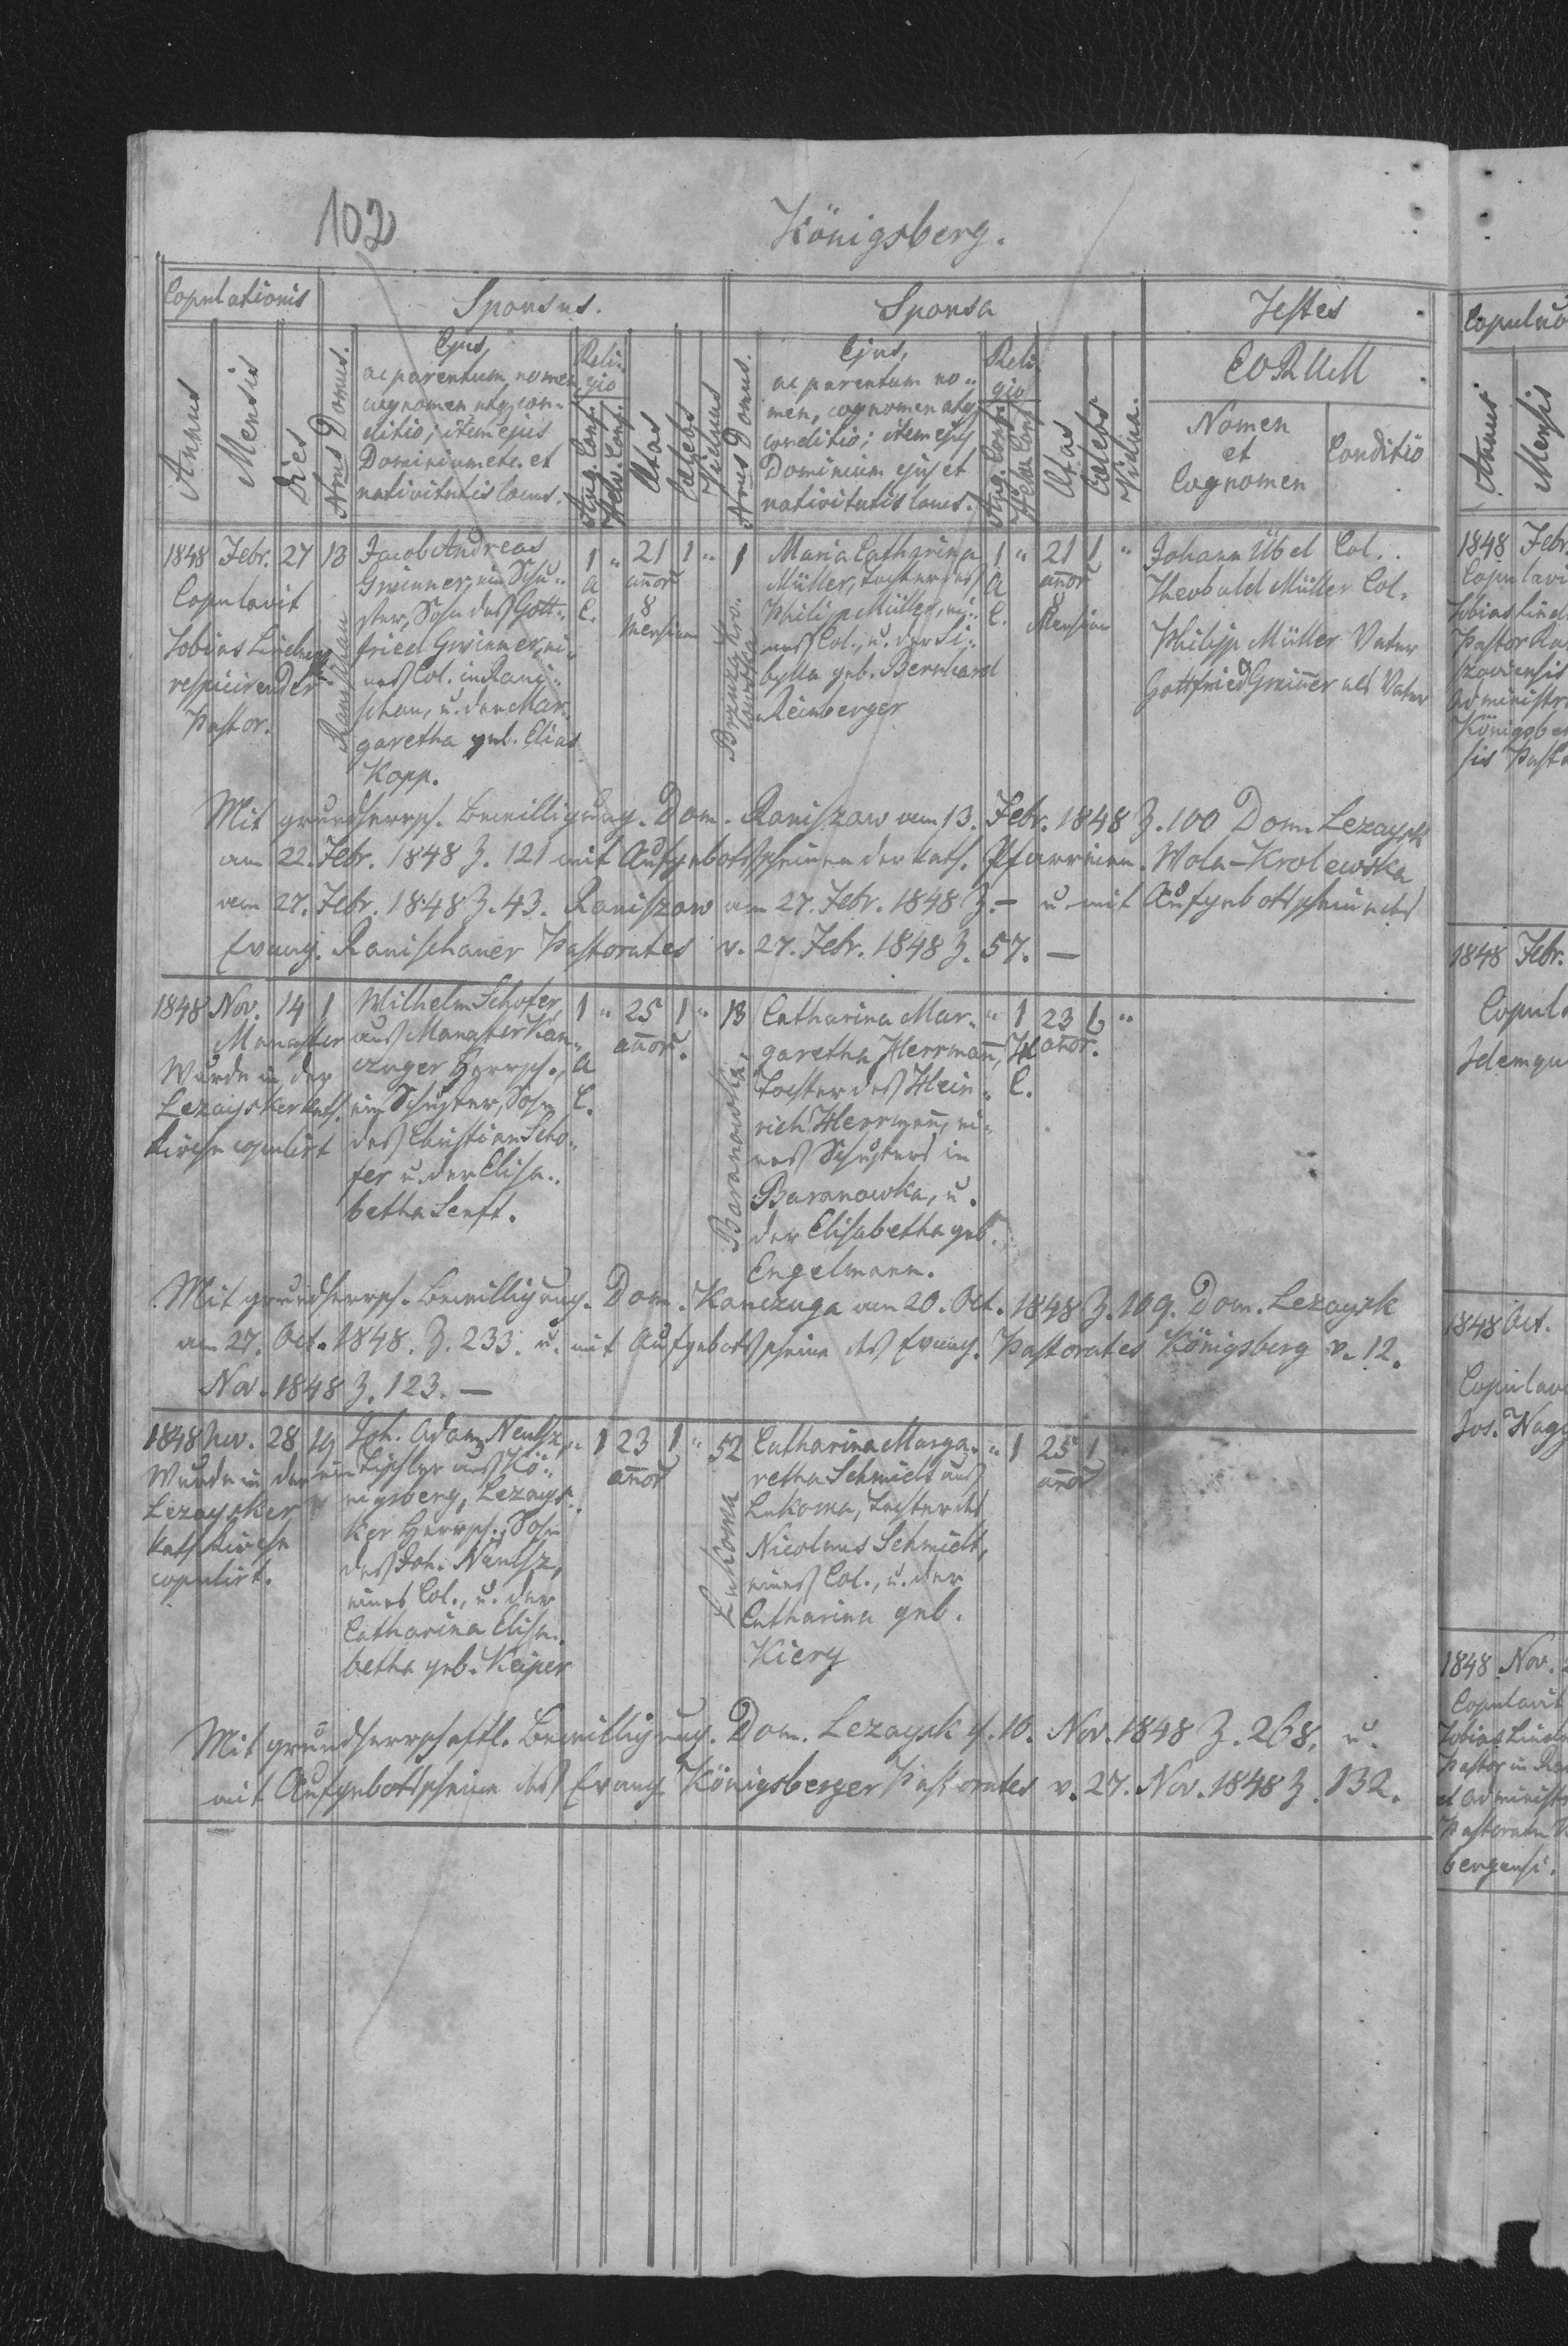 102
Königsberg.
Copulationis
Sponsus.
Sponsa
Testes
Annus
Mensis
Dies
Nrus Domus.
Ejus,
ac parentum, nomen,
cognomen atq; con-
ditio; item ejus
Dominium etc. et
nativitatis locus.
Reli-
gio
Aug. Conf.
Helv. Conf.
Ætas
Cælebs
Viduus
Nrus Domus.
Ejus,
ac parentum no-
men, cognomen atq;
conditio; item ejus
Dominium ejus et
nativitatis locus.
Reli-
gio
Aug. Conf.
Helv. Conf.
Ætas
Cælebs
Vidua.
EORUM
Nomen
et
Cognomen
Conditio
1848 Febr. 27 13
Copulavit
Tobias
respicirender
Pastor.
Ranischau
Jacob Andreas
Greinner, ein Schu-
ster, Sohn des Gott-
fried Greinner, ei-
nes Col. in Rani-
schau, u. der Mar-
garetha geb. Elias
Kopp.
1 " 21 1 "
A. C.
añor
8
Mensium
1
Brzuza Kro-
lewska
Maria Catharina
Müller, Tochter des
Philipp Müller, ei-
nes Col., u. der Si-
bylla geb. Bernhard
Reinberger
1 " 21 1 "
A. C.
añor
Mensium
Johann Übel Col.
Theobald Müller Col.
Philipp Müller Vater
Gottfried Greiner als Vater
Mit grundherrsch. Bewilligung. Dom. Raniszow vom 13. Febr. 1848 Z. 100 Dom. Lezaysk
am 22. Febr. 1848 Z. 121 mit Aufgebotsscheinen der kath. Pfarreien. Wola-Krolewska
vom 27. Febr. 1848 Z. 43. Raniszow am 27. Febr. 1848 Z. – u. mit Aufgebotsschein des
Evang. Ranischauer Pastorates v. 27. Febr. 1848 Z. 57. —
1848 Nov. 14 1
Monaster
Wurde in der
Lezaysker kath.
Kirche copulirt
Wilhelm Schofer,
aus Monaster Kan-
czuger Herrsch.,
ein Schuster, Sohn
des Christian Scho-
fer u. der Elisa-
betha Senft.
1 " 25 1 "
A. C.
añor.
13
Baranowka
Catharina Mar-
garetha Herrmañ,
Tochter des Hein-
rich Herrmañ, ei-
nes Schusters in
Baranowka, u.
der Elisabetha geb.
Engelmann.
" 1 23 1 "
H. C.
añor.
Mit grundherrsch. Bewilligung. Dom. Kanczuga am 20. Oct. 1848 Z. 109. Dom. Lezaysk
am 27. Oct. 1848. Z. 233. u. mit Aufgebotsscheine des Evang. Pastorates Königsberg v. 12.
Nov. 1848 Z. 123. —
1848 Nov. 28 19
Wurde in der
Lezaysker
kath Kirche
copulirt.
Joh. Adam Neutsz,
ein Tischler aus Kö-
nigsberg, Lezays-
ker Herrsch., Sohn
des Joh. Neutsz,
eines Col., u. der
Catharina Elisa-
betha geb. Keiper
" 1 23 1 "
añor
52
Lukoma
Catharina Marga-
retha Schmidt aus
Lukoma, Tochter des
Nicolaus Schmidt,
eines Col., u. der
Catharina geb.
Kiery
" 1 25 1 "
añor
Mit grundherrschaftl. Bewilligung. Dom. Lezaysk v. 10. Nov. 1848 Z. 268. u.
mit Aufgebotsscheine des Evang. Königsberger Pastorates v. 27. Nov. 1848 Z. 132.
Annus
Mensis
1848 Febr.
1848 Febr.
1848 Oct.
Jos. Nagy
1848 Nov.
Copulavit
Pastor in
bergensi.